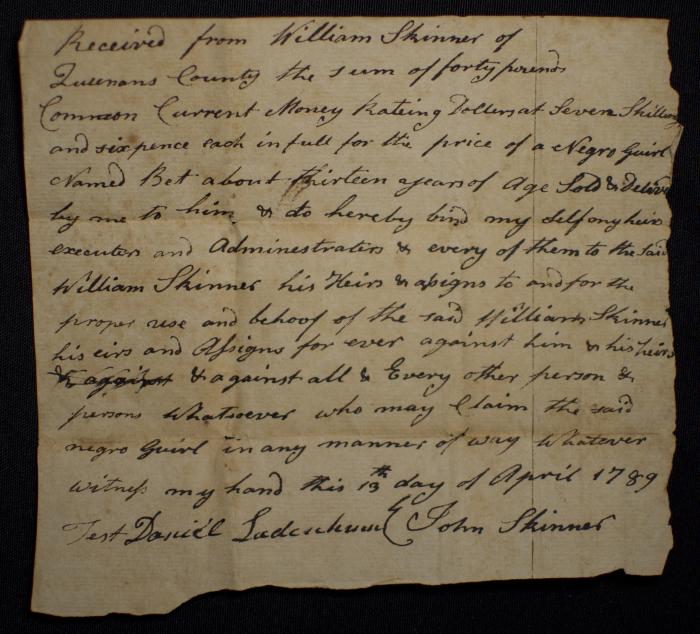 Received from William Skinner of
Queenans County the sum of forty pounds
Common Current Money Rateing Dollers at Seven Shillings
and sixpence each in full for the price of a Negro Guirl
Named Bet about thirteen years of Age Sold & Delive
by me to him & do hereby bind my self my heirs
executors and Administraters & every of them to the said
William Skinner his Heirs & assigns to and for the
proper use and behoof of the said William Skinner
his eirs and Assigns for ever against him & his heirs
& against & against all & Every other person &
persons Whatsoever who may Claim the said
negro Guirl in any manner of way Whatever
witness my hand this 13th day of April 1789
Test Daniel John Skinner